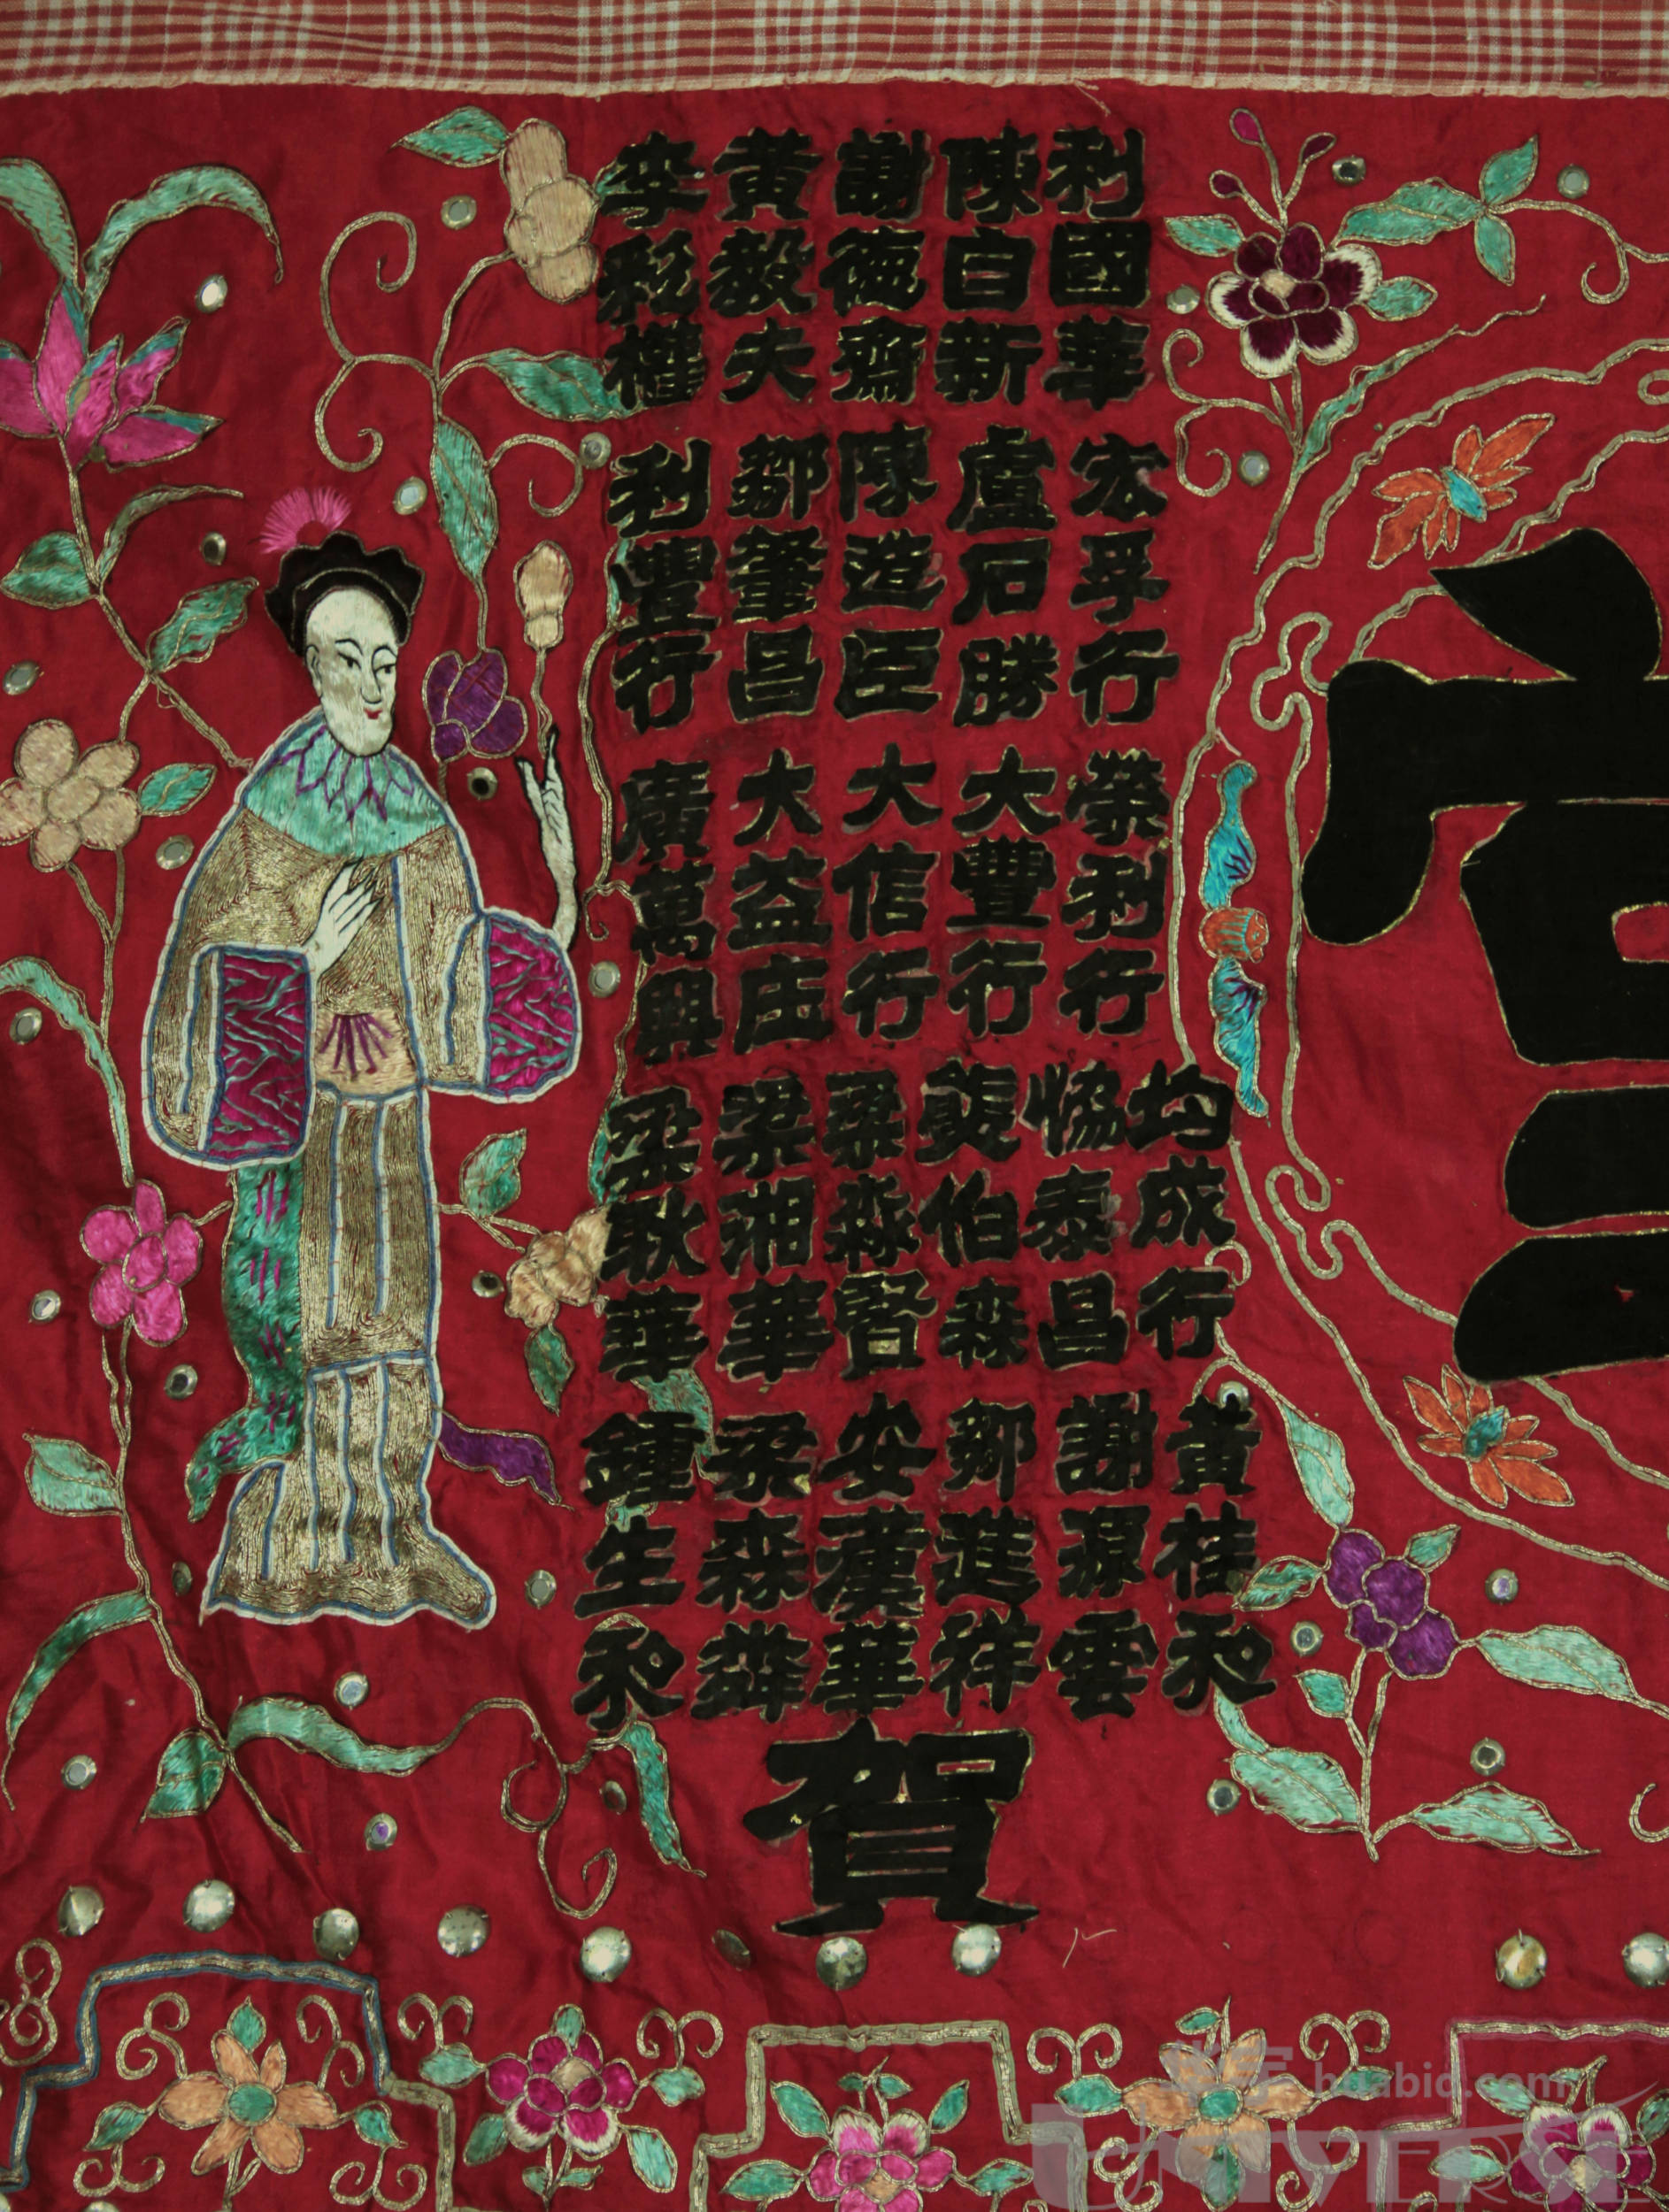 利國華
陳白新
謝德齋
黃毅夫
李和權
宏孚行
盧石勝
陳造臣
鄒肇昌
利豐行
榮利行
大豐行
大信行
大益庄
廣萬興
均成行
恊泰昌
龔伯森
梁森
梁湘華
梁耿華
黃桂和
謝源雲
鄒進祥
安漢華
梁森
鍾生永
賀
huabid.com
UNIVERSE